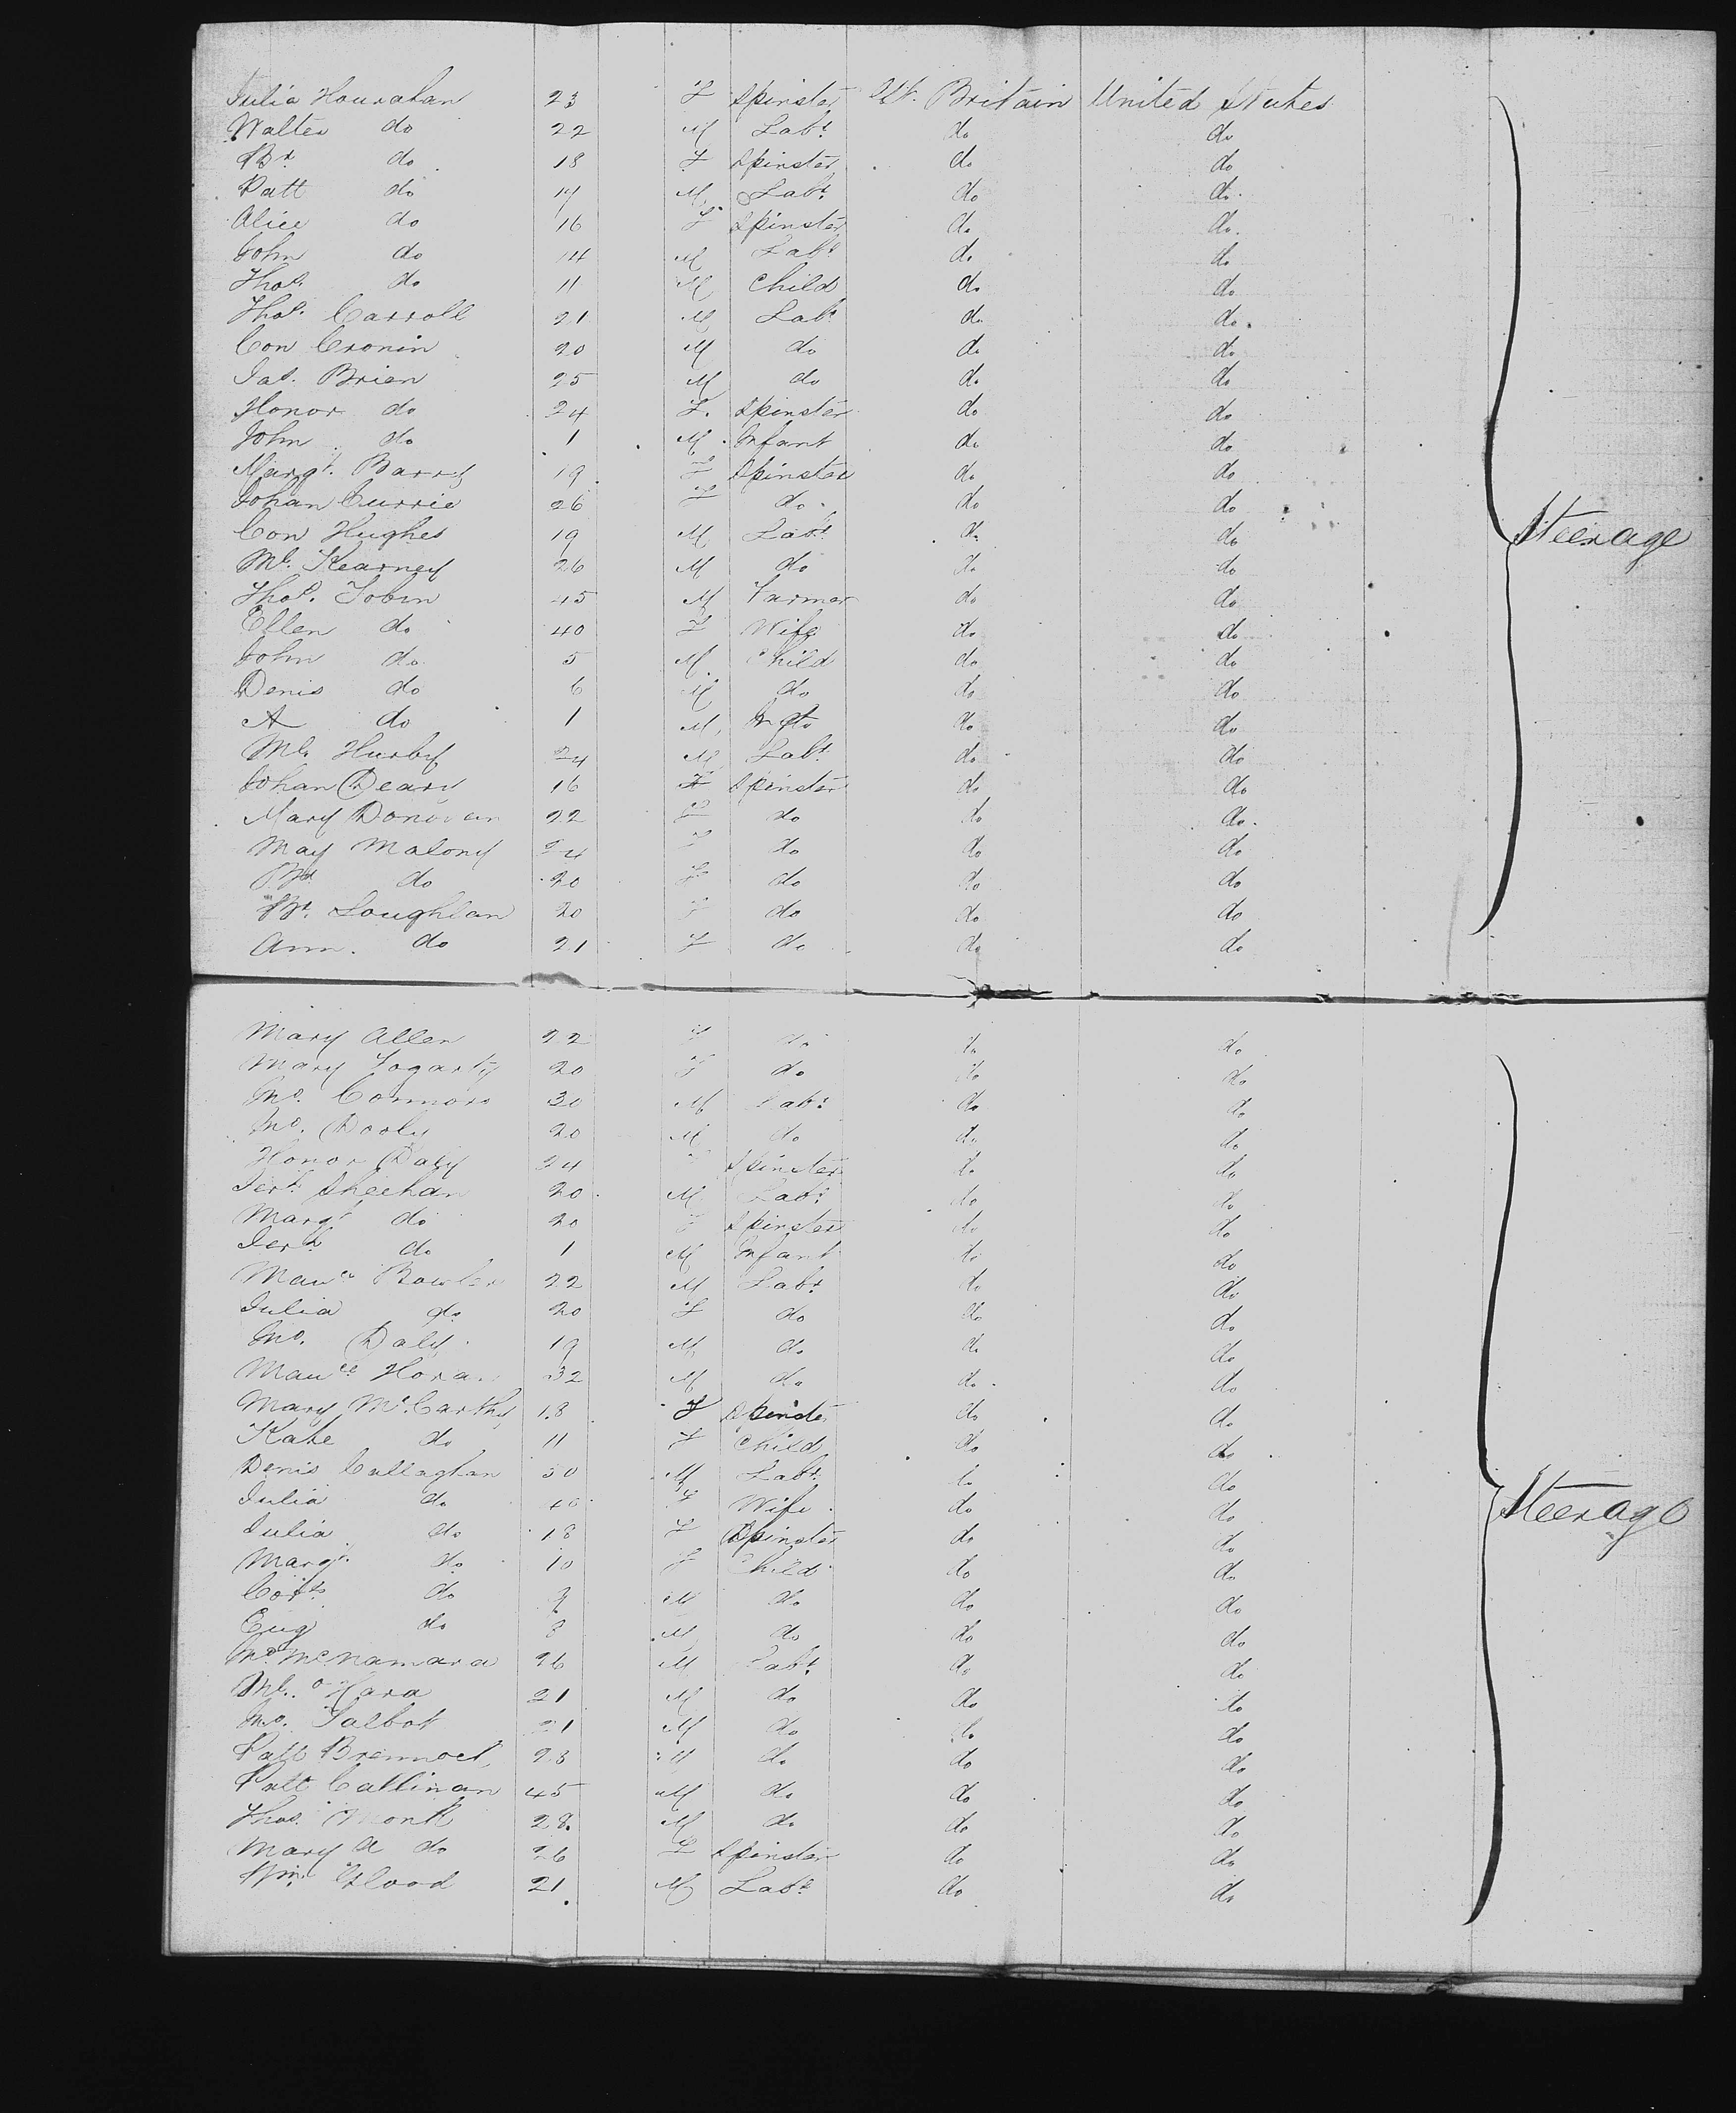 Julia Hourahan 23 F Spinster Gt. Britain United States
Walter do 22 M Labr do do
Bt do 18 F Spinster do do
Patt do 17 M Labr do do
Alice do 16 F Spinster do do
John do 14 M Labr do do
Thos. do 11 M Child do do
Thos. Carroll 21 M Labr do do
Con Cronin 20 M do do do
Jas. Brien 25 M do do do
Honor do 24 F. Spinster do do
John do 1 M Infant do do
Margt. Barry 19 F Spinster do do
Johan Currie 26 F do do do
Con Hughes 19 M Labr do do
Ml. Kearney 26 M do do do
Thos. Tobin 45 M Farmer do do
Ellen do 40 F Wife do do
John do 5 M Child do do
Denis do 6 M do do do
A do 1 M Inft do do
Ml. Hurly 24 M Labr do do
Johan Deary 16 F Spinster do do
Mary Donovan 22 F do do do
May Malony 24 F do do do
do 20 F do do do
Bt. Loughlan 20 F do do do
Ann. do 21 F do do do
Steerage
Mary Allen 22 F do do do
Mary Fogarty 20 F do do do
Jno. Connors 30 M Labr do do
Jno. Dooly 20 M do do do
Honor Daly 24 F Spinster do do
Jerh. Sheehan 20 M Labr do do
Margt do 20 F Spinster do do
Jerh do 1 M Infant do do
Mauce Bowler 22 M Labr do do
Julia do 20 F do do do
Jno. Daly 19 M do do do
Mauce Horan 32 M do do do
Mary McCarthy 18 F Spinster do do
Kate do 11 F Child do do
Denis Callaghan 50 M Labr do do
Julia do 40 F Wife do do
Julia do 18 F Spinster do do
Margt. do 10 F Child do do
do M do do do
Eug do 8 M do do do
Jno McNamara 26 M Labr do do
Ml. O'Hara 21 M do do do
Jno. Talbot 21 M do do do
Patt 23 M do do do
Patt Callinan 45 M do do do
Thos. Monk 28 M do do do
Mary A do 26 F Spinster do do
Wm. Flood 21 M Labr do do
Steerage